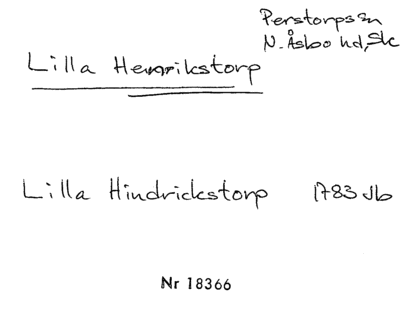 Perstorps sn
N. Åsbo hd, Sk
Lilla Henrikstorp
Lilla Hindrickstorp 1783 Jb
Nr 18366